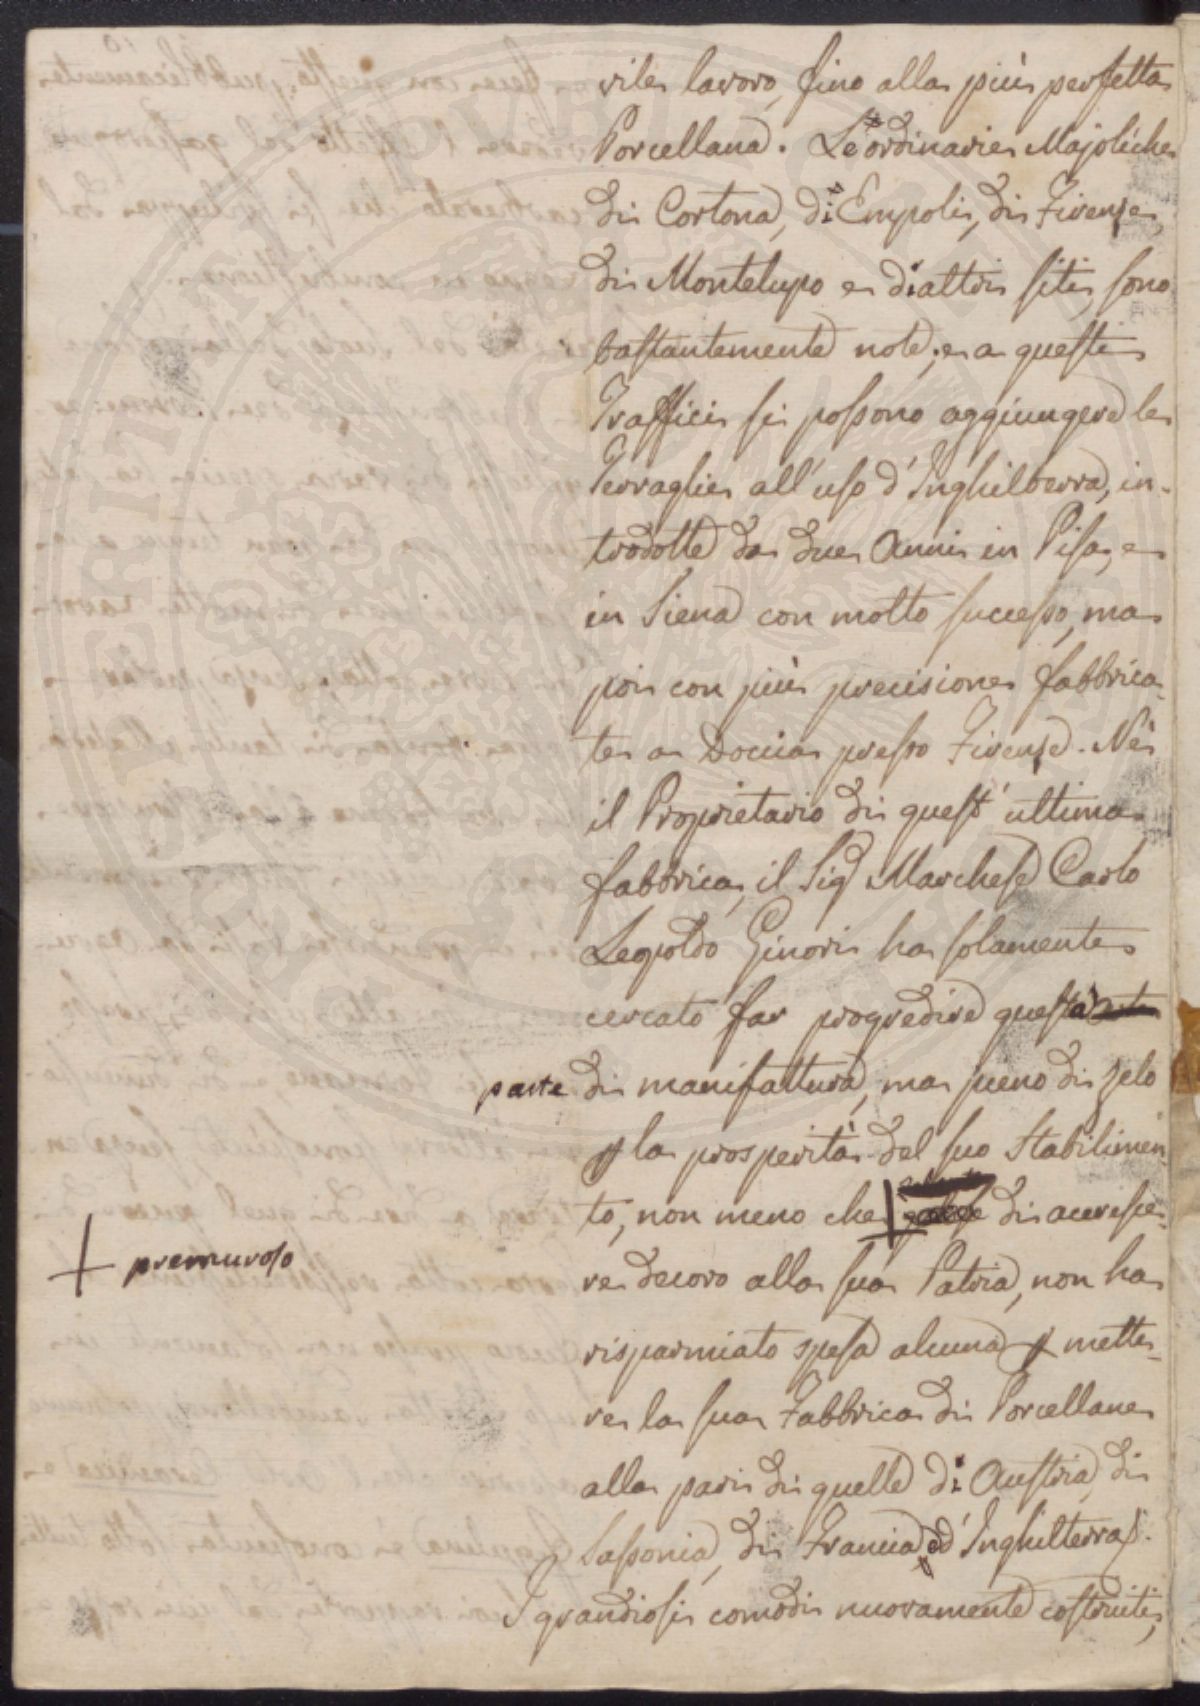 vile lavoro, fino alla più perfetta
Porcellana. Le ordinarie Majoliche
di Cortona, di Empoli, di Firenze,
di Montelupo e di altri siti, sono
bastantemente note; e a questi
Traffici si possono aggiungere le
Terraglie all'uso d'Inghilterra, in-
trodotte da due Anni in Pisa, e
in Siena con molto successo, ma
poi con più precisione fabbrica-
te a Doccia presso Firenze. Nè
il Proprietario di quest'ultima
fabbrica, il Sig Marchese Carlo
Leopoldo Ginori ha solamente
cercato far progredire questa
parte di manifattura, ma pieno di zelo
p la prosperità del suo Stabilimen-
to, non meno che di accresce-
+ premuroso
re decoro alla sua Patria, non ha
risparmiato spesa alcuna p mette-
re la sua Fabbrica di Porcellane
alla pari di quelle di Austria, di
Sassonia, di Francia, ed'Inghilterra.
I grandiosi comodi nuovamente costruiti,